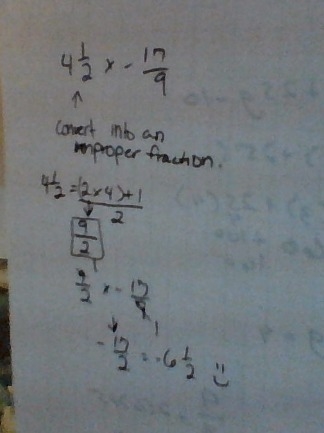 4 1/2 x - 17/9
↑
Convert into an
improper fraction.
4 1/2 = (2x4)+1/2
↓
9/2
9/2 x - 17/9
1
↓
- 17/2 = -6 1/2